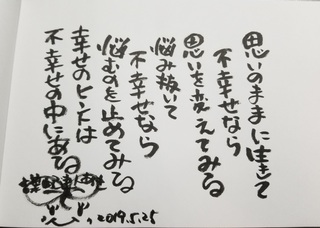 思いのままに生きて
不幸せなら
思いを変えてみる
悩み抜いて
不幸せなら
悩むのを止めてみる
幸せのヒントは
不幸せの中にある
2019.5.25